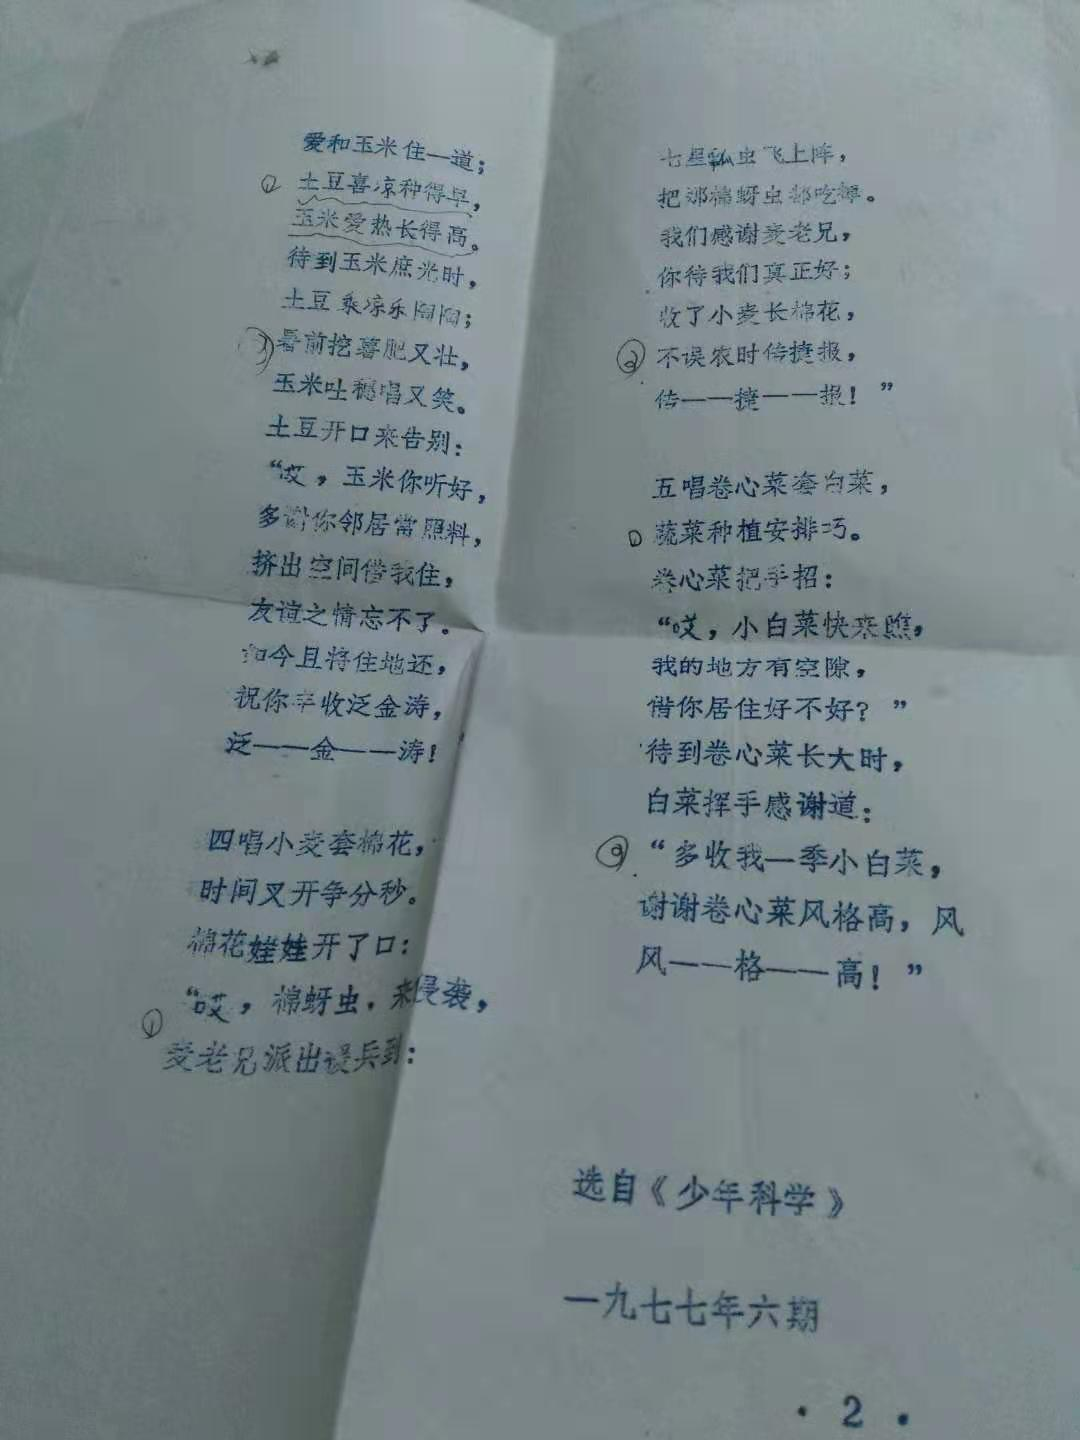 爱和玉米住一道；
② 土豆喜凉种得早，
玉米爱热长得高。
待到玉米庶光时，
土豆乘凉乐陶陶；
③ 暑前挖薯肥又壮，
玉米吐穗唱又笑。
土豆开口来告别：
“哎，玉米你听好，
多谢你邻居常照料，
挤出空间借我住，
友谊之情忘不了。
如今且将住地还，
祝你丰收泛金涛，
泛——金——涛！
四唱小麦套棉花，
时间叉开争分秒。
棉花娃娃开了口：
“哎，棉蚜虫，来侵袭，
① 麦老兄派出援兵到：
七星瓢虫飞上阵，
把那棉蚜虫都吃掉。
我们感谢麦老兄，
你待我们真正好；
收了小麦长棉花，
② 不误农时传捷报，
传——捷——报！”
五唱卷心菜套白菜，
① 蔬菜种植安排巧。
卷心菜把手招：
“哎，小白菜快来瞧，
我的地方有空隙，
借你居住好不好？”
待到卷心菜长大时，
白菜挥手感谢道：
“多收我一季小白菜，
谢谢卷心菜风格高，风
风——格——高！”
选自《少年科学》
一九七七年六期
·2·